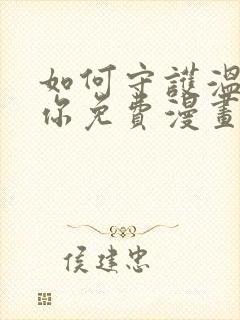 如何守護溫
你免費漫畫
侯建忠